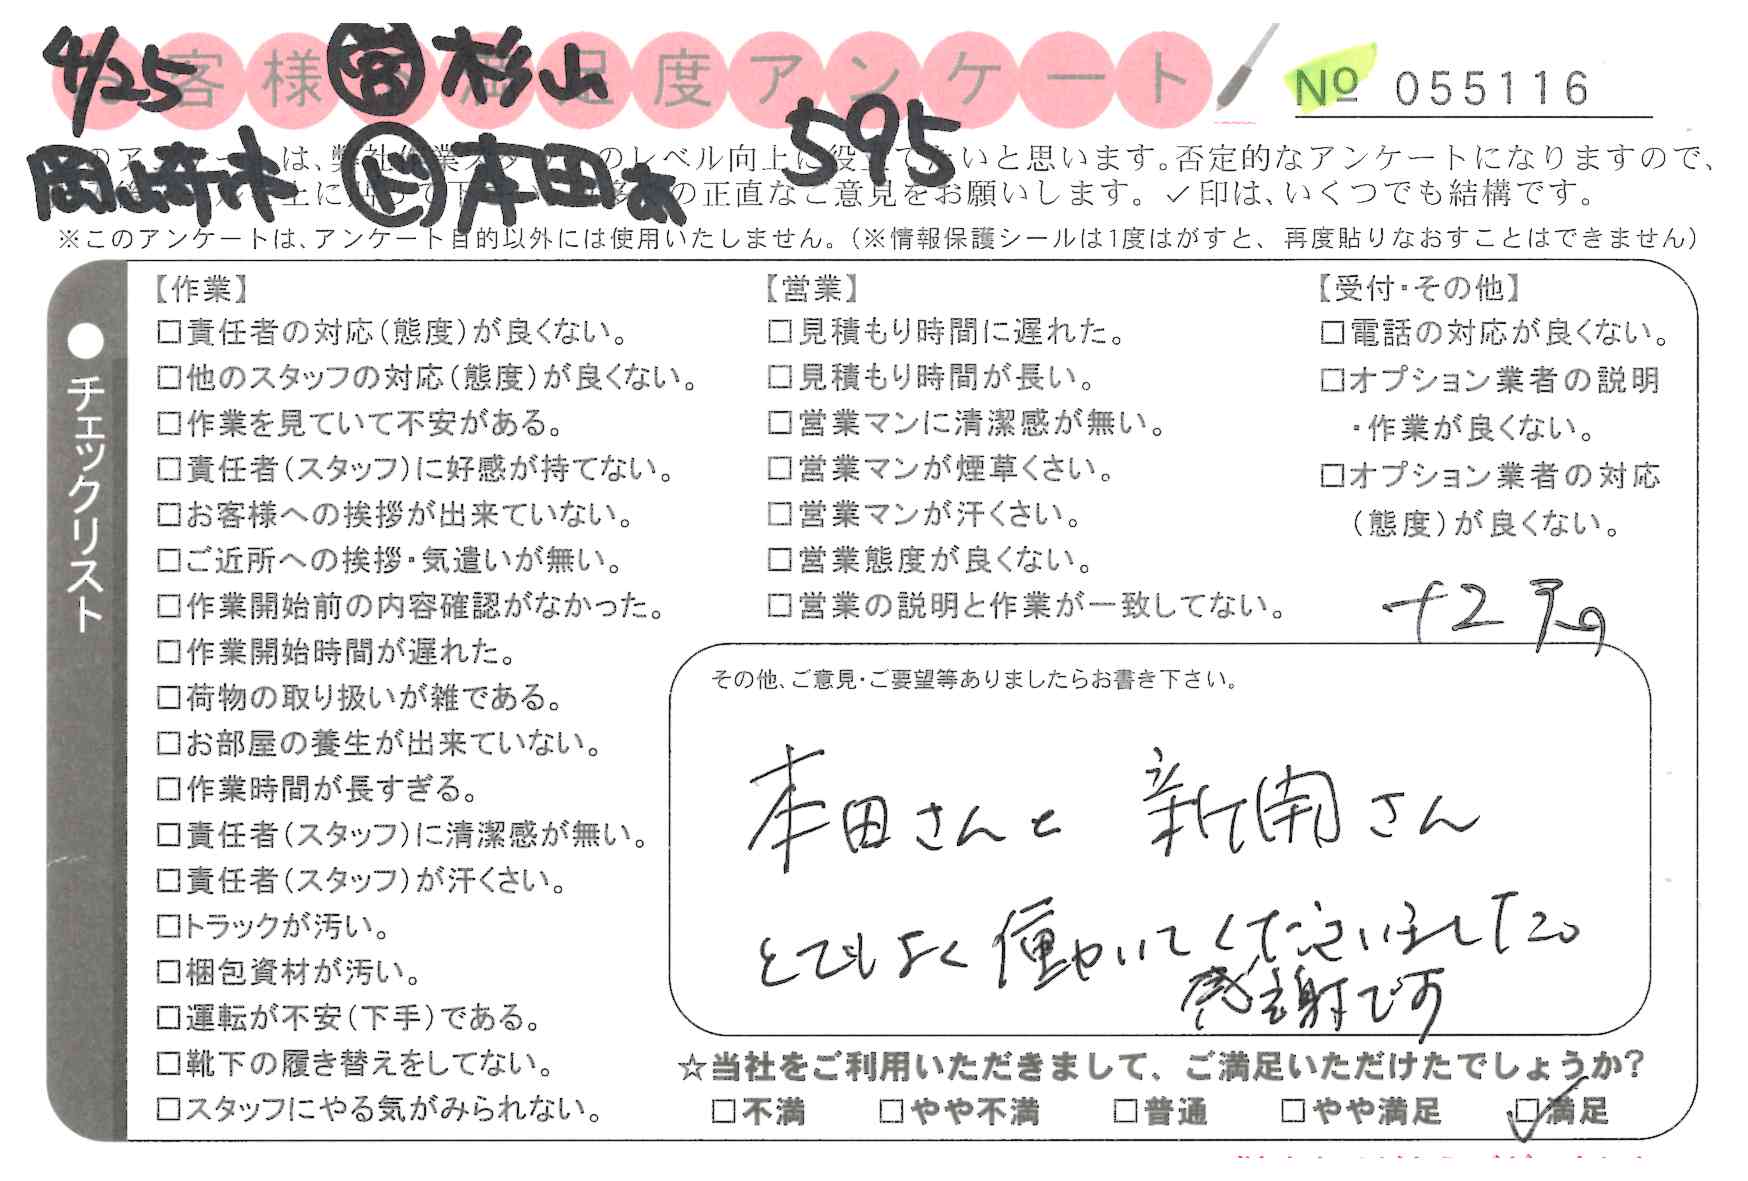 4/25 ㊙ 杉山
お客様満足度アンケート
No 055116
595
岡崎市 ド 本田
レベル向上に役立てたいと思います。否定的なアンケートになりますので、
の正直なご意見をお願いします。✓印は、いくつでも結構です。
※このアンケートは、アンケート目的以外には使用いたしません。(※情報保護シールは1度はがすと、再度貼りなおすことはできません)
●チェックリスト
【作業】
□責任者の対応(態度)が良くない。
□他のスタッフの対応(態度)が良くない。
□作業を見ていて不安がある。
□責任者(スタッフ)に好感が持てない。
□お客様への挨拶が出来ていない。
□ご近所への挨拶・気遣いが無い。
□作業開始前の内容確認がなかった。
□作業開始時間が遅れた。
□荷物の取り扱いが雑である。
□お部屋の養生が出来ていない。
□作業時間が長すぎる。
□責任者(スタッフ)に清潔感が無い。
□責任者(スタッフ)が汗くさい。
□トラックが汚い。
□梱包資材が汚い。
□運転が不安(下手)である。
□靴下の履き替えをしてない。
□スタッフにやる気がみられない。
【営業】
□見積もり時間に遅れた。
□見積もり時間が長い。
□営業マンに清潔感が無い。
□営業マンが煙草くさい。
□営業マンが汗くさい。
□営業態度が良くない。
□営業の説明と作業が一致してない。
【受付・その他】
□電話の対応が良くない。
□オプション業者の説明
・作業が良くない。
□オプション業者の対応
(態度)が良くない。
その他、ご意見・ご要望等ありましたらお書き下さい。
本田さんと 新開さん
とてもよく働いてくださいました。
感謝です
☆当社をご利用いただきまして、ご満足いただけたでしょうか?
□不満 □やや不満 □普通 □やや満足 ☑満足